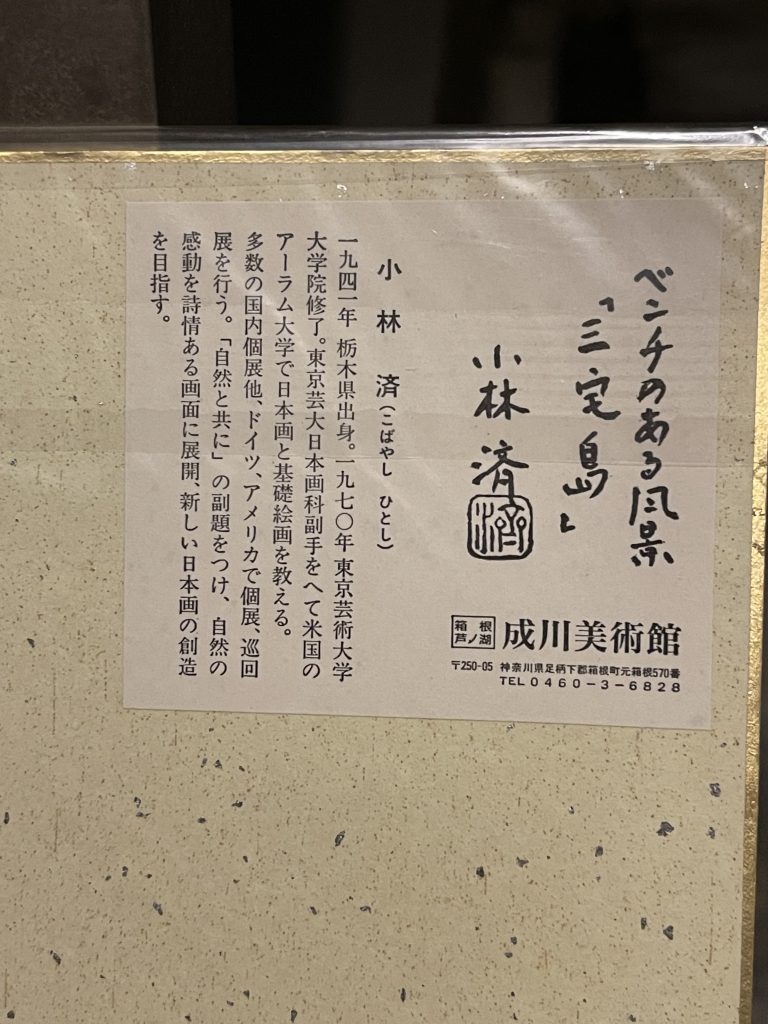 ベンチのある風景
「三宅島」
小林 済
済
箱根
芦ノ湖
成川美術館
〒250-05 神奈川県足柄下郡箱根町元箱根570番
TEL0460-3-6828
小林 済(こばやし ひとし)
一九四一年 栃木県出身。一九七〇年 東京芸術大学
大学院修了。東京芸大日本画科副手をへて米国の
アーラム大学で日本画と基礎絵画を教える。
多数の国内個展他、ドイツ、アメリカで個展、巡回
展を行う。「自然と共に」の副題をつけ、自然の
感動を詩情ある画面に展開、新しい日本画の創造
を目指す。